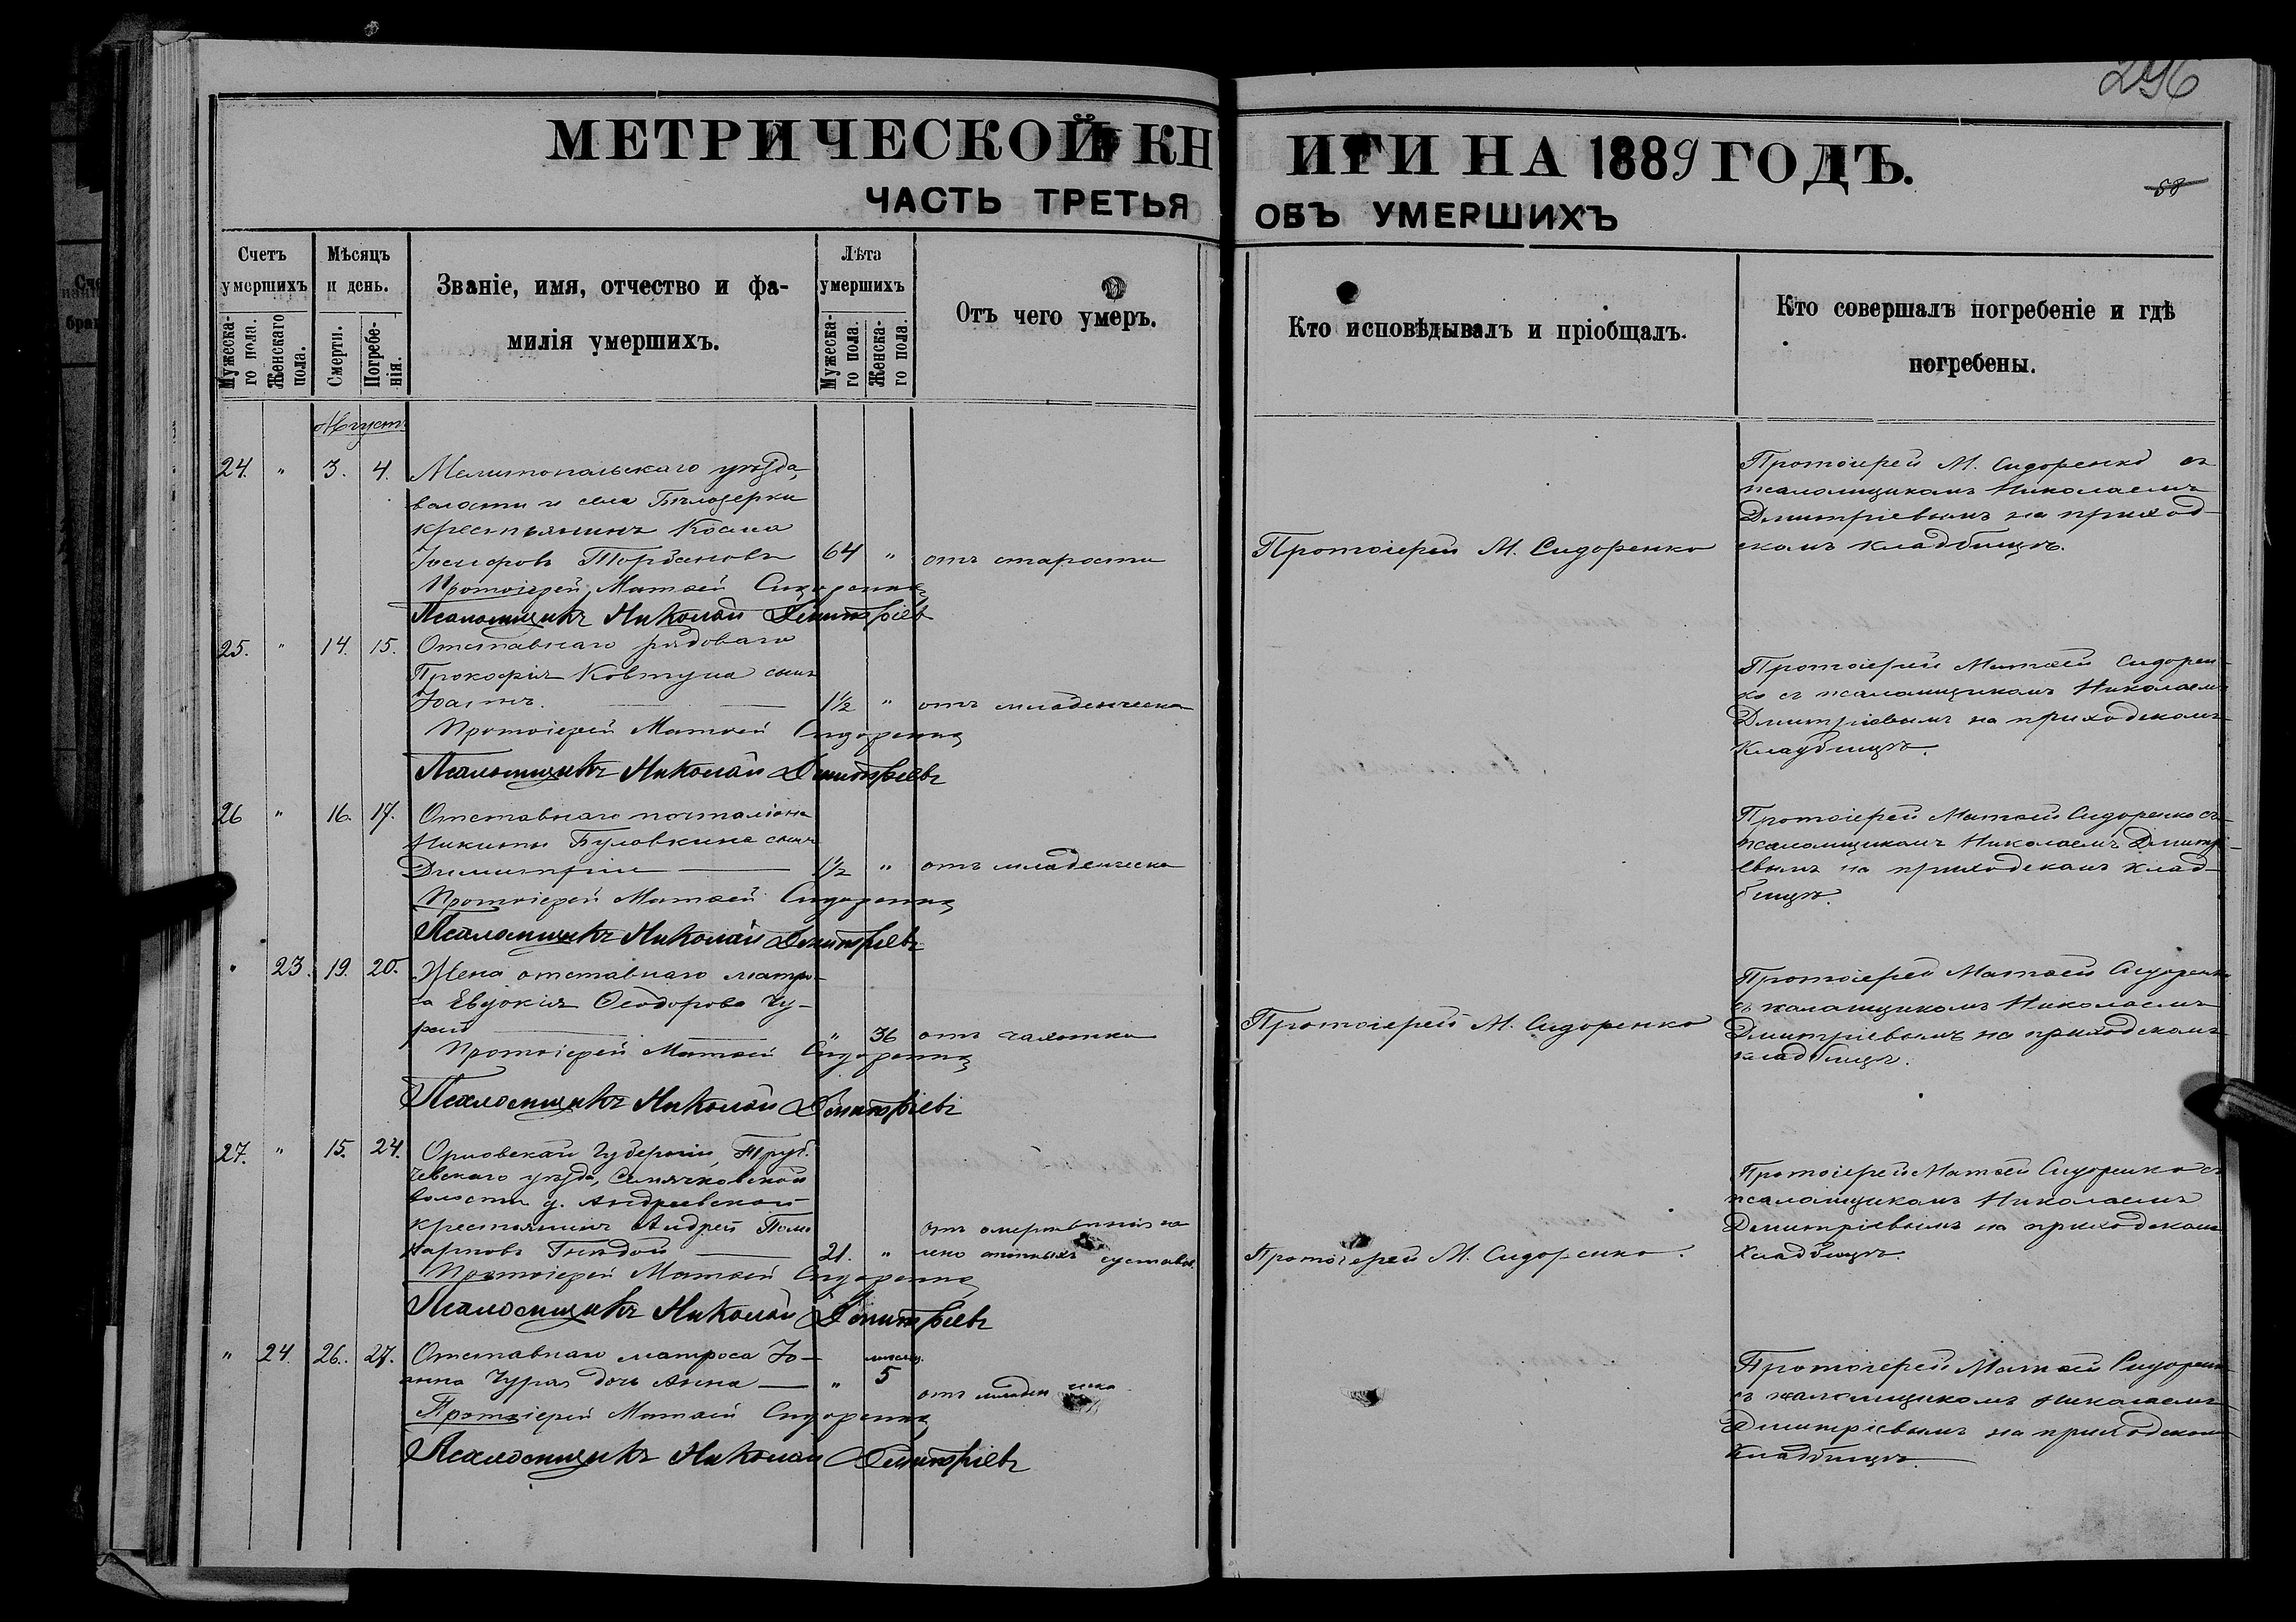 296
МЕТРИЧЕСКОЙ КНИГИ НА 1889 ГОДЪ.
58
ЧАСТЬ ТРЕТЬЯ ОБЪ УМЕРШИХЪ
Счетъ умершихъ
Мужеска-го пола.
Женскаго пола.
Мѣсяцъ и день.
Смерти.
Погребе-нія.
Званіе, имя, отчество и фа-
милія умершихъ.
Лѣта умершихъ
Мужеска-го пола.
Женска-го пола.
Отъ чего умеръ.
Кто исповѣдывалъ и пріобщалъ.
Кто совершалъ погребеніе и гдѣ
погребены.
Августъ
24. " 3. 4.
Мелитопольскаго уѣзда,
волости и села Бѣлозерки
крестьянинъ Косма
Іосифовъ 64 " отъ старости
Протоіерей Матѳей Сидоренко
Псаломщикъ Николай Димитріевъ
Протоіерей М. Сидоренко
Протоіерей М. Сидоренко съ
псаломщикомъ Николаемъ
Димитріевымъ на приход-
скомъ кладбищѣ.
25. " 14. 15.
Отставнаго рядоваго
Прокофія Ковтуна сынъ
Іоаннъ. 1½ " отъ младенческа
Протоіерей Матѳей Сидоренко
Псаломщикъ Николай Димитріевъ
Протоіерей Матѳей Сидорен-
ко съ псаломщикомъ Николаемъ
Димитріевымъ на приходскомъ
кладбищѣ.
26 " 16. 17.
Отставнаго почталіона
Никиты Буловкина сынъ
Димитрій 1½ " отъ младенческа
Протоіерей Матѳей Сидоренко
Псаломщикъ Николай Димитріевъ
Протоіерей Матѳей Сидоренко съ
псаломщикомъ Николаемъ Димитрі-
евымъ на приходскомъ клад-
бищѣ.
" 23. 19. 20.
Жена отставнаго матро-
са Евдокія Ѳеодорова Чу-
рая " 36 отъ чахотки
Протоіерей Матѳей Сидоренко
Псаломщикъ Николай Димитріевъ
Протоіерей М. Сидоренко
Протоіерей Матѳей Сидоренко
съ псаломщикомъ Николаемъ
Димитріевымъ на приходскомъ
кладбищѣ.
27. " 15. 24.
Орловской Губерніи, Труб-
чевскаго уѣзда,
волости д. Андреевской
крестьянинъ Андрей Поли-
карповъ Гнѣдой 21. "
Протоіерей Матѳей Сидоренко
Псаломщикъ Николай Димитріевъ
Протоіерей М. Сидоренко.
Протоіерей Матѳей Сидоренко съ
псаломщикомъ Николаемъ
Димитріевымъ на приходскомъ
кладбищѣ.
" 24. 26. 27.
Отставнаго матроса Іо-
анна Чурая дочь Анна " 5 мѣсяц. отъ младенческа
Протоіерей Матѳей Сидоренко
Псаломщикъ Николай Димитріевъ
Протоіерей Матѳей Сидоренко
съ псаломщикомъ Николаемъ
Димитріевымъ на приходскомъ
кладбищѣ.